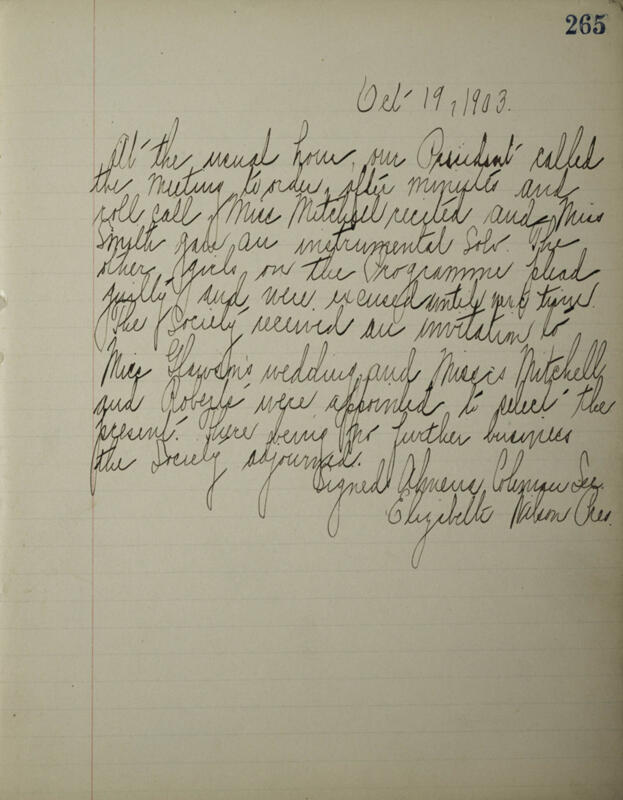 265
Oct 19, 1903.
At the usual hour, our President called
the meeting to order, after minutes and
roll call, Miss Mitchell recited and Miss
Smyth gave an instrumental Solo. The
other girls on the Programme plead
guilty and were excused until next time.
The Society received an invitation to
Miss wedding, and Misses Mitchell
and Roberts were appointed to select the
present. There being no further business
the Society adjourned.
Signed Coleman Sec.
Elizabeth Watson Pres.